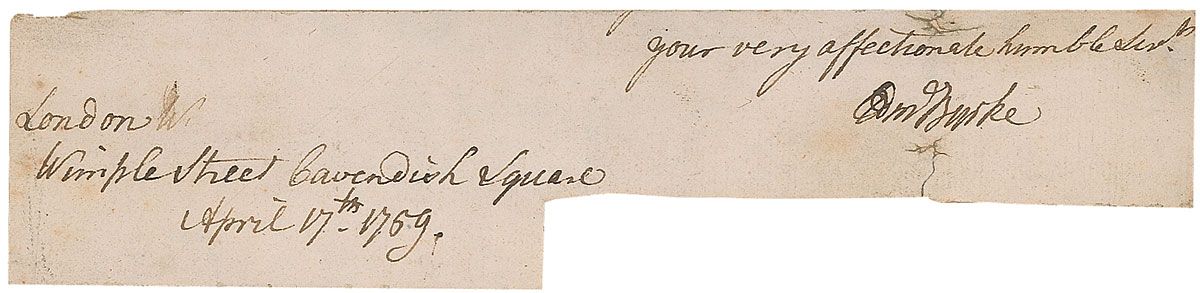 your very affectionate humble Servt.
Edmd Burke
London W.
Wimple Street Cavendish Square
April 17th. 1759.